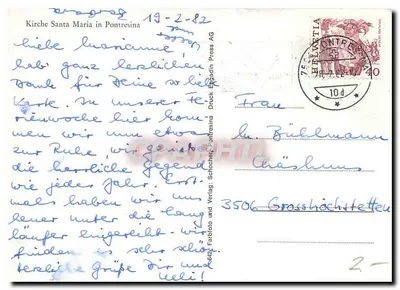 19-2-82
Kirche Santa Maria in Pontresina
Liebe Marianne!
hab ganz herzlichen
Dank für Deine so liebe
Karte. In unserer Fe-
rienwoche hier kom-
men wir nun etwas
zur Ruhe, wir genießen
die herrliche Gegend
wie jedes Jahr. Erst-
mals haben wir uns
hier unter die Lang-
läufer eingereiht - wir
finden es sehr schön.
Herzliche Grüße Dir und
Ueli!
Druck Engadin Press AG
Farbfoto und Verlag: Pontresina
HELVETIA
40
PONTRESINA
10d
Frau
M. Bühlmann
3506 Grosshöchstetten
2-